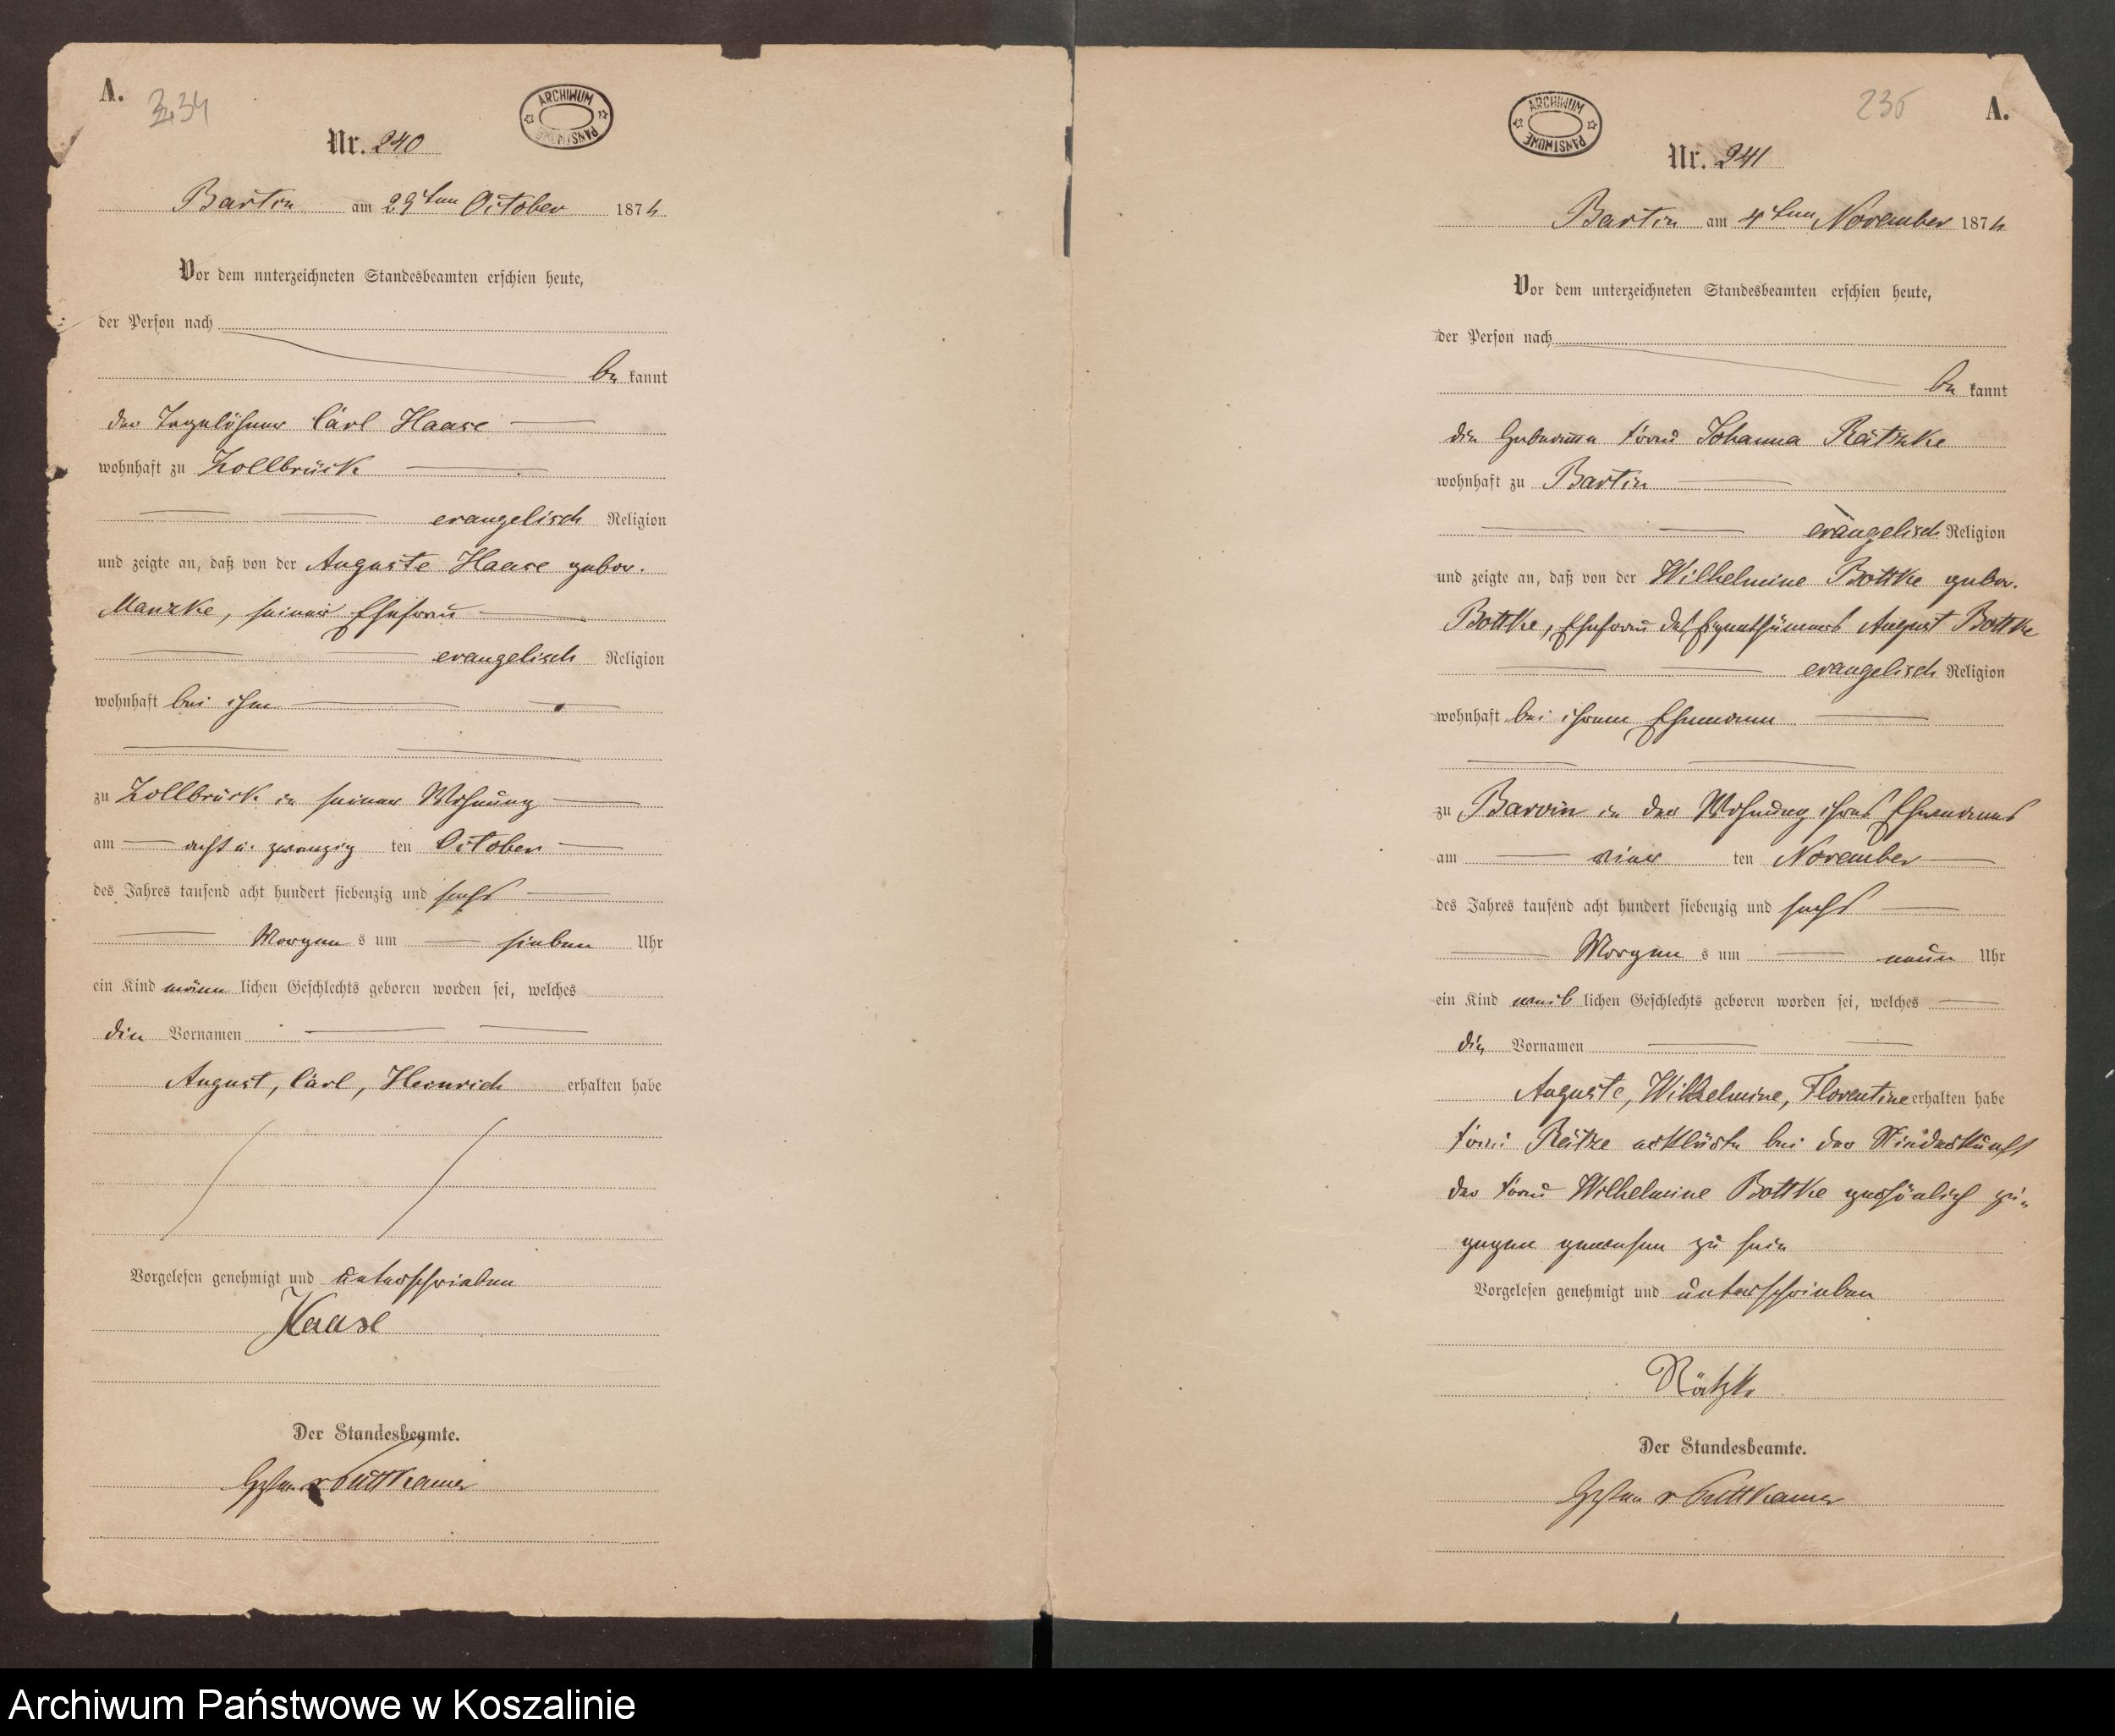 A.
234
ARCHIWUM PAŃSTWOWE
Nr. 240
Bartin am 29ten October 1876
Vor dem unterzeichneten Standesbeamten erschien heute,
der Person nach
be kannt
der Tagelöhner Carl Haase
wohnhaft zu Zollbrück
evangelisch Religion
und zeigte an, daß von der Auguste Haase gebor.
Manzke, seiner Ehefrau
evangelisch Religion
wohnhaft bei ihm
zu Zollbrück in seiner Wohnung
am acht u. zwanzig ten October
des Jahres tausend acht hundert siebenzig und sechs
Morgen s um sieben Uhr
ein Kind männ lichen Geschlechts geboren worden sei, welches
die Vornamen
August, Carl, Heinrich erhalten habe
Vorgelesen genehmigt und unterschrieben
Haase
Der Standesbeamte.
v Puttkamer
235
A.
ARCHIWUM PAŃSTWOWE
Nr. 241
Bartin am 4ten November 1876
Vor dem unterzeichneten Standesbeamten erschien heute,
der Person nach
be kannt
die Hebamme Frau Johanna Rätzke
wohnhaft zu Bartin
evangelisch Religion
und zeigte an, daß von der Wilhelmine Bottke gebor.
Bottke, Ehefrau des Eigenthümers August Bottke
evangelisch Religion
wohnhaft bei ihrem Ehemann
zu Barvin in der Wohnung ihres Ehemanns
am einen ten November
des Jahres tausend acht hundert siebenzig und sechs
Morgen s um neun Uhr
ein Kind weib lichen Geschlechts geboren worden sei, welches
die Vornamen
Auguste, Wilhelmine, Florentine erhalten habe
Frau Rätzke erklärte bei der Niederkunft
der Frau Wilhelmine Bottke persönlich zu-
gegen gewesen zu sein
Vorgelesen genehmigt und unterschrieben
Rätzke
Der Standesbeamte.
v Puttkamer
Archiwum Państwowe w Koszalinie